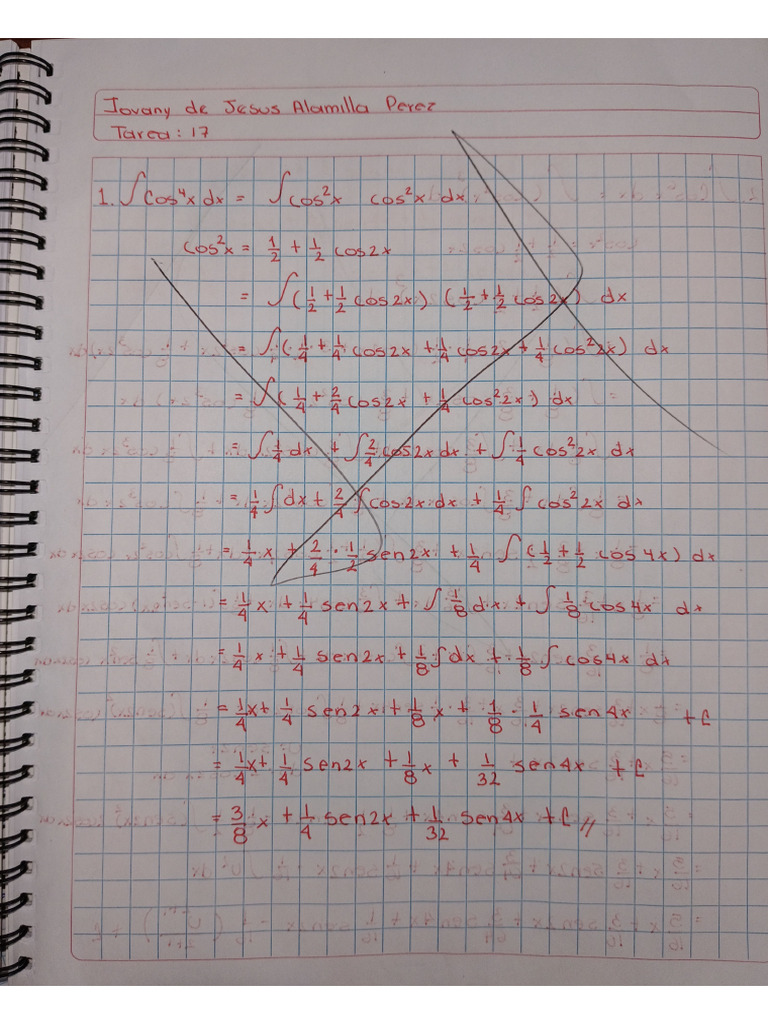 Jovany de Jesus Alamilla Perez
Tarea: 17
1. ∫ Cos⁴x dx = ∫ cos²x cos²x dx
cos²x = 1/2 + 1/2 cos2x
= ∫ (1/2 + 1/2 cos2x) (1/2 + 1/2 cos2x) dx
= ∫ (1/4 + 1/4 cos2x + 1/4 cos2x + 1/4 cos²2x) dx
= ∫ (1/4 + 2/4 cos2x + 1/4 cos²2x) dx
= ∫ 1/4 dx + ∫ 2/4 cos2x dx + ∫ 1/4 cos²2x dx
= 1/4 ∫ dx + 2/4 ∫ cos2x dx + 1/4 ∫ cos²2x dx
= 1/4 x + 2/4 · 1/2 sen2x + 1/4 ∫ (1/2 + 1/2 cos4x) dx
= 1/4 x + 1/4 sen2x + ∫ 1/8 dx + ∫ 1/8 cos4x dx
= 1/4 x + 1/4 sen2x + 1/8 ∫ dx + 1/8 ∫ cos4x dx
= 1/4 x + 1/4 sen2x + 1/8 x + 1/8 · 1/4 sen4x + C
= 1/4 x + 1/4 sen2x + 1/8 x + 1/32 sen4x + C
= 3/8 x + 1/4 sen2x + 1/32 sen4x + C //